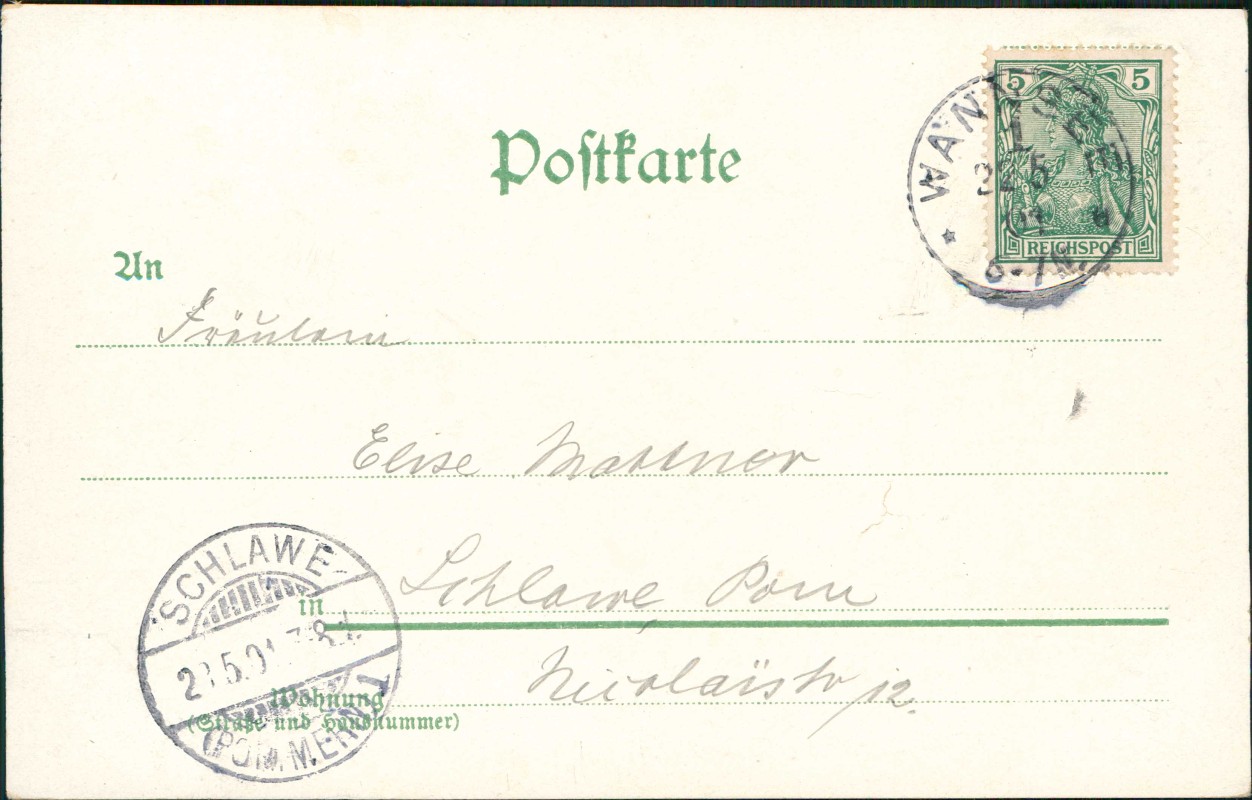 5 5
REICHSPOST
WANN
22 5
01
6-7N.
Postkarte
An
Fräulein
Elise Mattner
in Schlawe Pom
Wohnung Nicolaïstr 12.
(Straße und Hausnummer)
SCHLAWE
5.01. 7-8
(POMMERN)